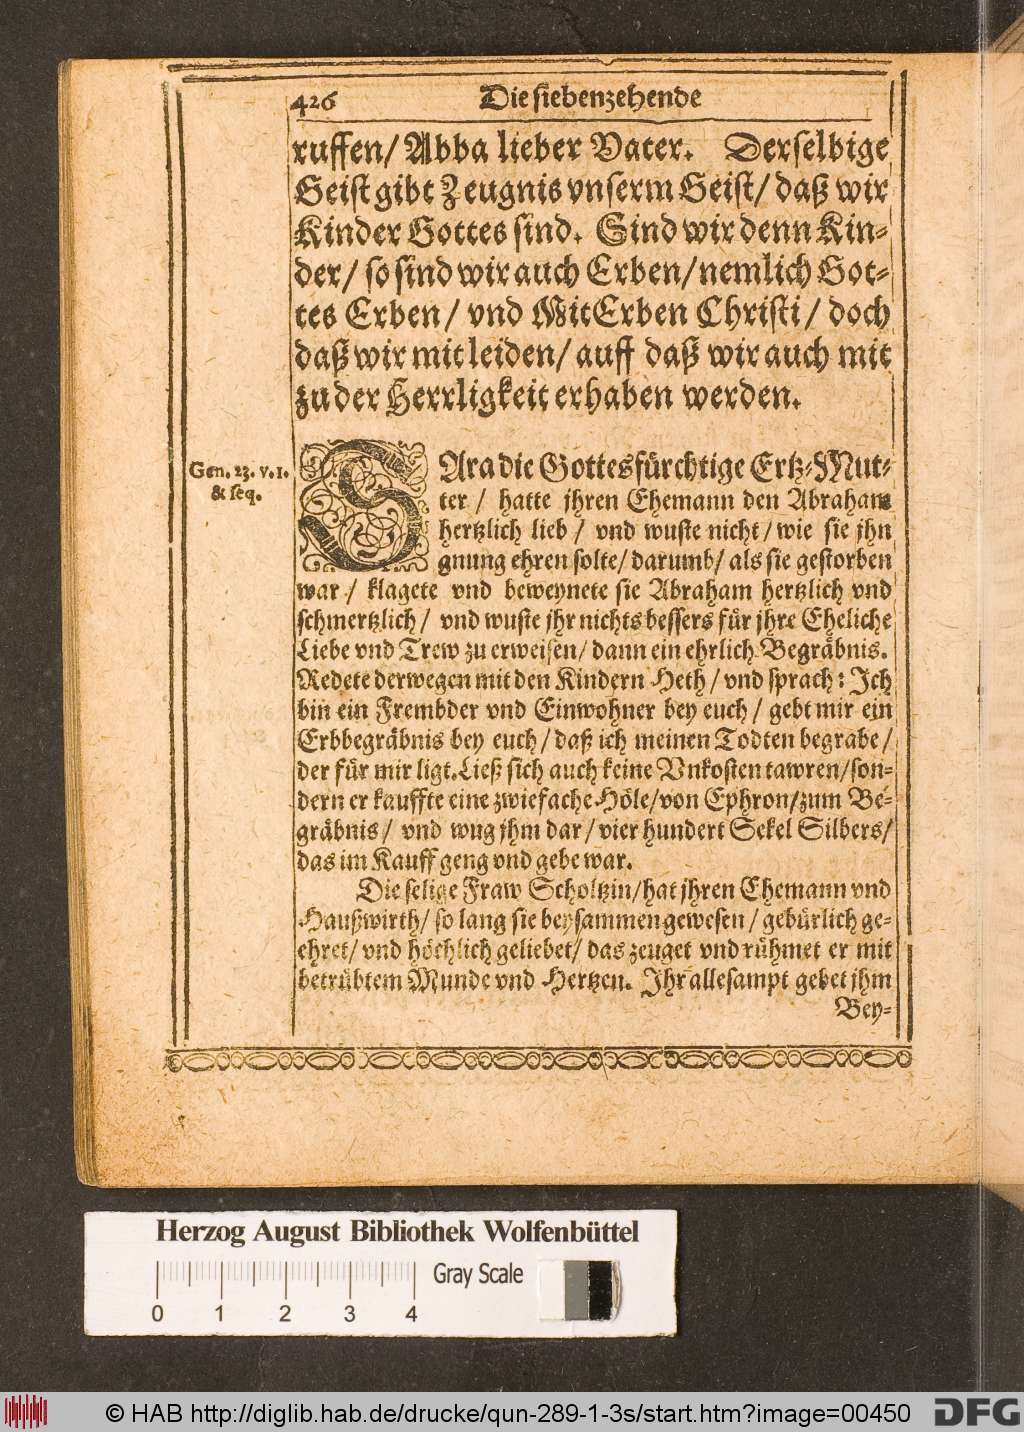 426 Die siebenzehende
ruffen/ Abba lieber Vater. Derselbige
Geist gibt Zeugnis vnserm Geist/ daß wir
Kinder Gottes sind. Sind wir denn Kin-
der/ so sind wir auch Erben/ nemlich Got-
tes Erben/ vnd MitErben Christi/ doch
daß wir mit leiden/ auff daß wir auch mit
zu der Herrligkeit erhaben werden.
Gen. 23. v. 1.
& seq.
SAra die Gottesfürchtige Ertz-Mut-
ter/ hatte jhren Ehemann den Abraham
hertzlich lieb/ vnd wuste nicht/ wie sie jhn
gnung ehren solte/ darumb/ als sie gestorben
war/ klagete vnd beweynete sie Abraham hertzlich vnd
schmertzlich/ vnd wuste jhr nichts bessers für jhre Eheliche
Liebe vnd Trew zu erweisen/ dann ein ehrlich Begräbnis.
Redete derwegen mit den Kindern Heth/ vnd sprach: Ich
bin ein Frembder vnd Einwohner bey euch/ gebt mir ein
Erbbegräbnis bey euch/ daß ich meinen Todten begrabe/
der für mir ligt. Ließ sich auch keine Vnkosten tawren/ son-
dern er kauffte eine zwiefache Höle/ von Ephron/ zum Be-
gräbnis/ vnd wug jhm dar/ vier hundert Sekel Silbers/
das im Kauff geng vnd gebe war.
Die selige Fraw Scholtzin/ hat jhren Ehemann vnd
Haußwirth/ so lang sie beysammen gewesen/ gebürlich ge-
ehret/ vnd höchlich geliebet/ das zeuget vnd rühmet er mit
betrübtem Munde vnd Hertzen. Ihr allesampt gebet jhm
Bey-
Herzog August Bibliothek Wolfenbüttel
Gray Scale
0 1 2 3 4
© HAB http://diglib.hab.de/drucke/qun-289-1-3s/start.htm?image=00450
DFG